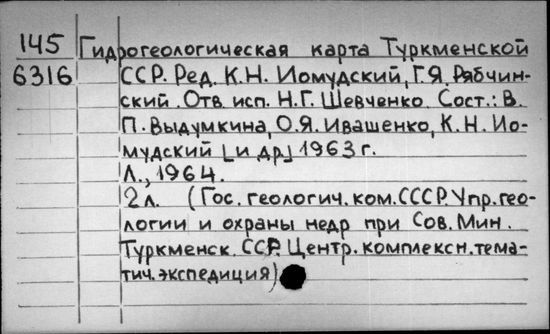 145 Гидрогеологическая карта Туркменской
6316 ССР. Ред. К.Н. Иомудский, Г.Я. Рябчин-
ский. Отв. исп. Н.Г. Шевченко. Сост.: В.
П. Выдумкина, О.Я. Ивашенко, К.Н. Ио-
мудский [и др] 1963 г.
Л., 1964.
2 л. (Гос. геологич. ком. СССР. Упр. гео-
логии и охраны недр при Сов. Мин.
Туркменск. ССР. Центр. комплексн. тема-
тич. экспедиция)